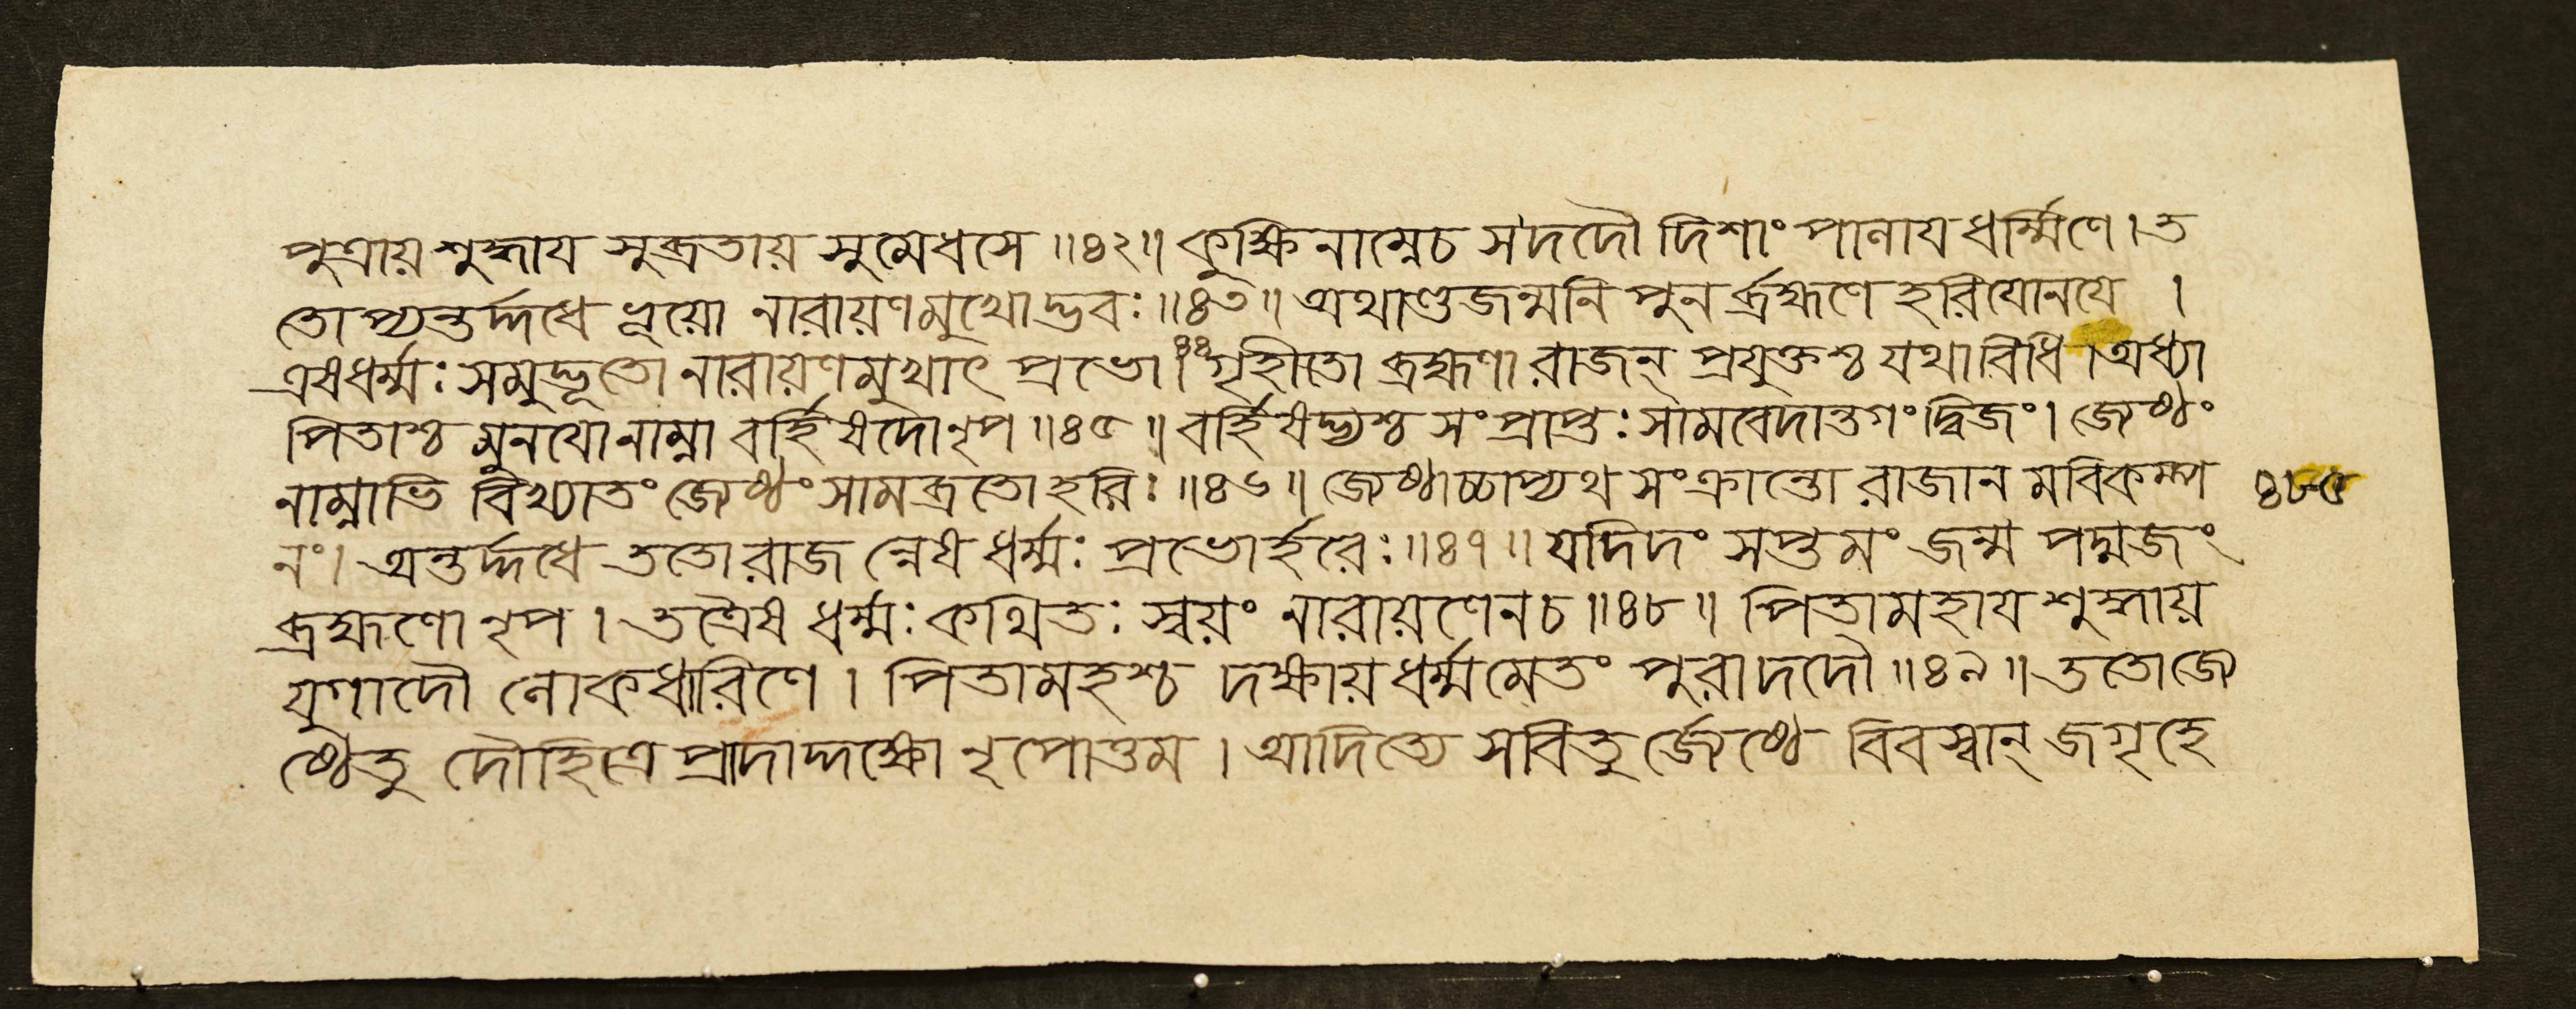 পুত্রায় শুদ্ধায সুব্রতায় সুমেধসে ॥৪২॥ কুক্ষি নাম্নেচ স দদৌ দিশাং পালায ধর্ম্মিণে । ত
তোপ্যন্তর্দ্দধে ভূয়ো নারায়ণমুখোদ্ভবঃ ॥৪৩॥ অথাণ্ডজন্মনি পুনর্ব্রহ্মণে হরিযোনযে ।
এষধর্ম্মঃ সমুদ্ভূতো নারায়ণমুখাৎ প্রভো ।৪৪ গৃহীতো ব্রহ্মণা রাজন্ প্রযুক্তশ্চ যথাবিধি । অধ্যা
পিতাশ্চ মুনযো নাম্না বর্হিষদো নৃপ ॥৪৫॥ বর্হিষদ্ভ্যশ্চ সংপ্রাপ্তঃ সামবেদান্তগং দ্বিজং । জ্যেষ্ঠং
নাম্নাভি বিখ্যাতং জ্যেষ্ঠং সামব্রতো হরিঃ ॥৪৬॥ জ্যেষ্ঠাচ্চাপ্যথ সংক্রান্তো রাজান মবিকম্প ৪৮৫
নং । অন্তর্দ্দধে ততো রাজ ন্নেষ ধর্ম্মঃ প্রভোর্হরেঃ ॥৪৭॥ যদিদং সপ্তমং জন্ম পদ্মজং
ব্রহ্মণো নৃপ । তত্রৈষ ধর্ম্মঃ কথিতঃ স্বয়ং নারায়ণেনচ ॥৪৮॥ পিতামহায শুদ্ধায়
যুগাদৌ লোকধারিণে । পিতামহশ্চ দক্ষায় ধর্ম্মমেতং পুরাদদৌ ॥৪৯॥ ততোজ্যে
ষ্ঠেতু দৌহিত্রে প্রাদাদ্দক্ষো নৃপোত্তম । আদিত্যে সবিতুর্জ্যেষ্ঠে বিবস্বান্ জগৃহে